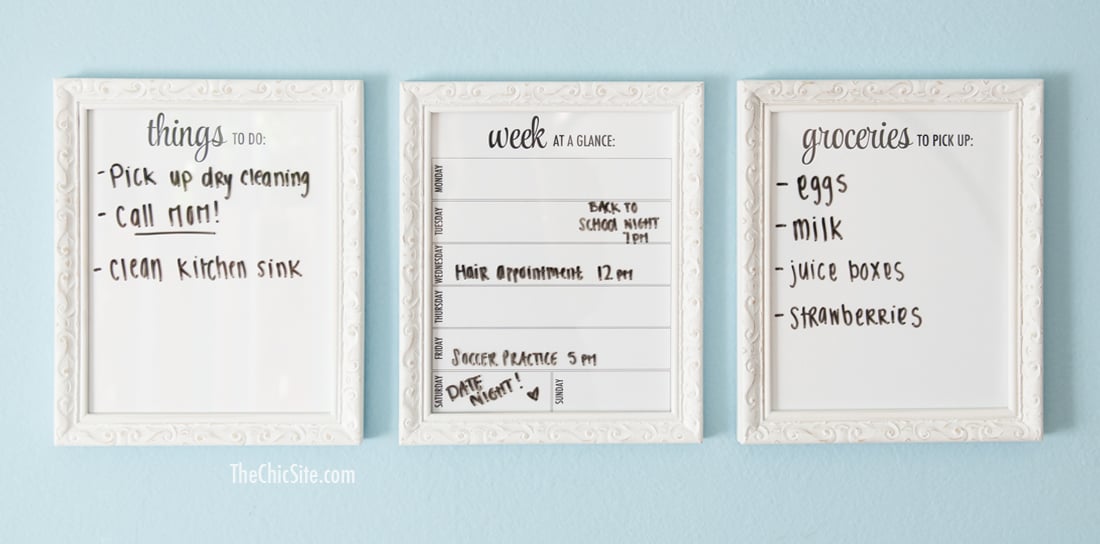 things TO DO:
- Pick up dry cleaning
- Call MOM!
- clean kitchen sink
week AT A GLANCE:
MONDAY
TUESDAY
BACK TO
SCHOOL NIGHT
7 PM
WEDNESDAY
Hair appointment 12 PM
THURSDAY
FRIDAY
SOCCER PRACTICE 5 PM
SATURDAY
DATE
NIGHT! ♥
SUNDAY
groceries TO PICK UP:
- eggs
- milk
- juice boxes
- strawberries
TheChicSite.com